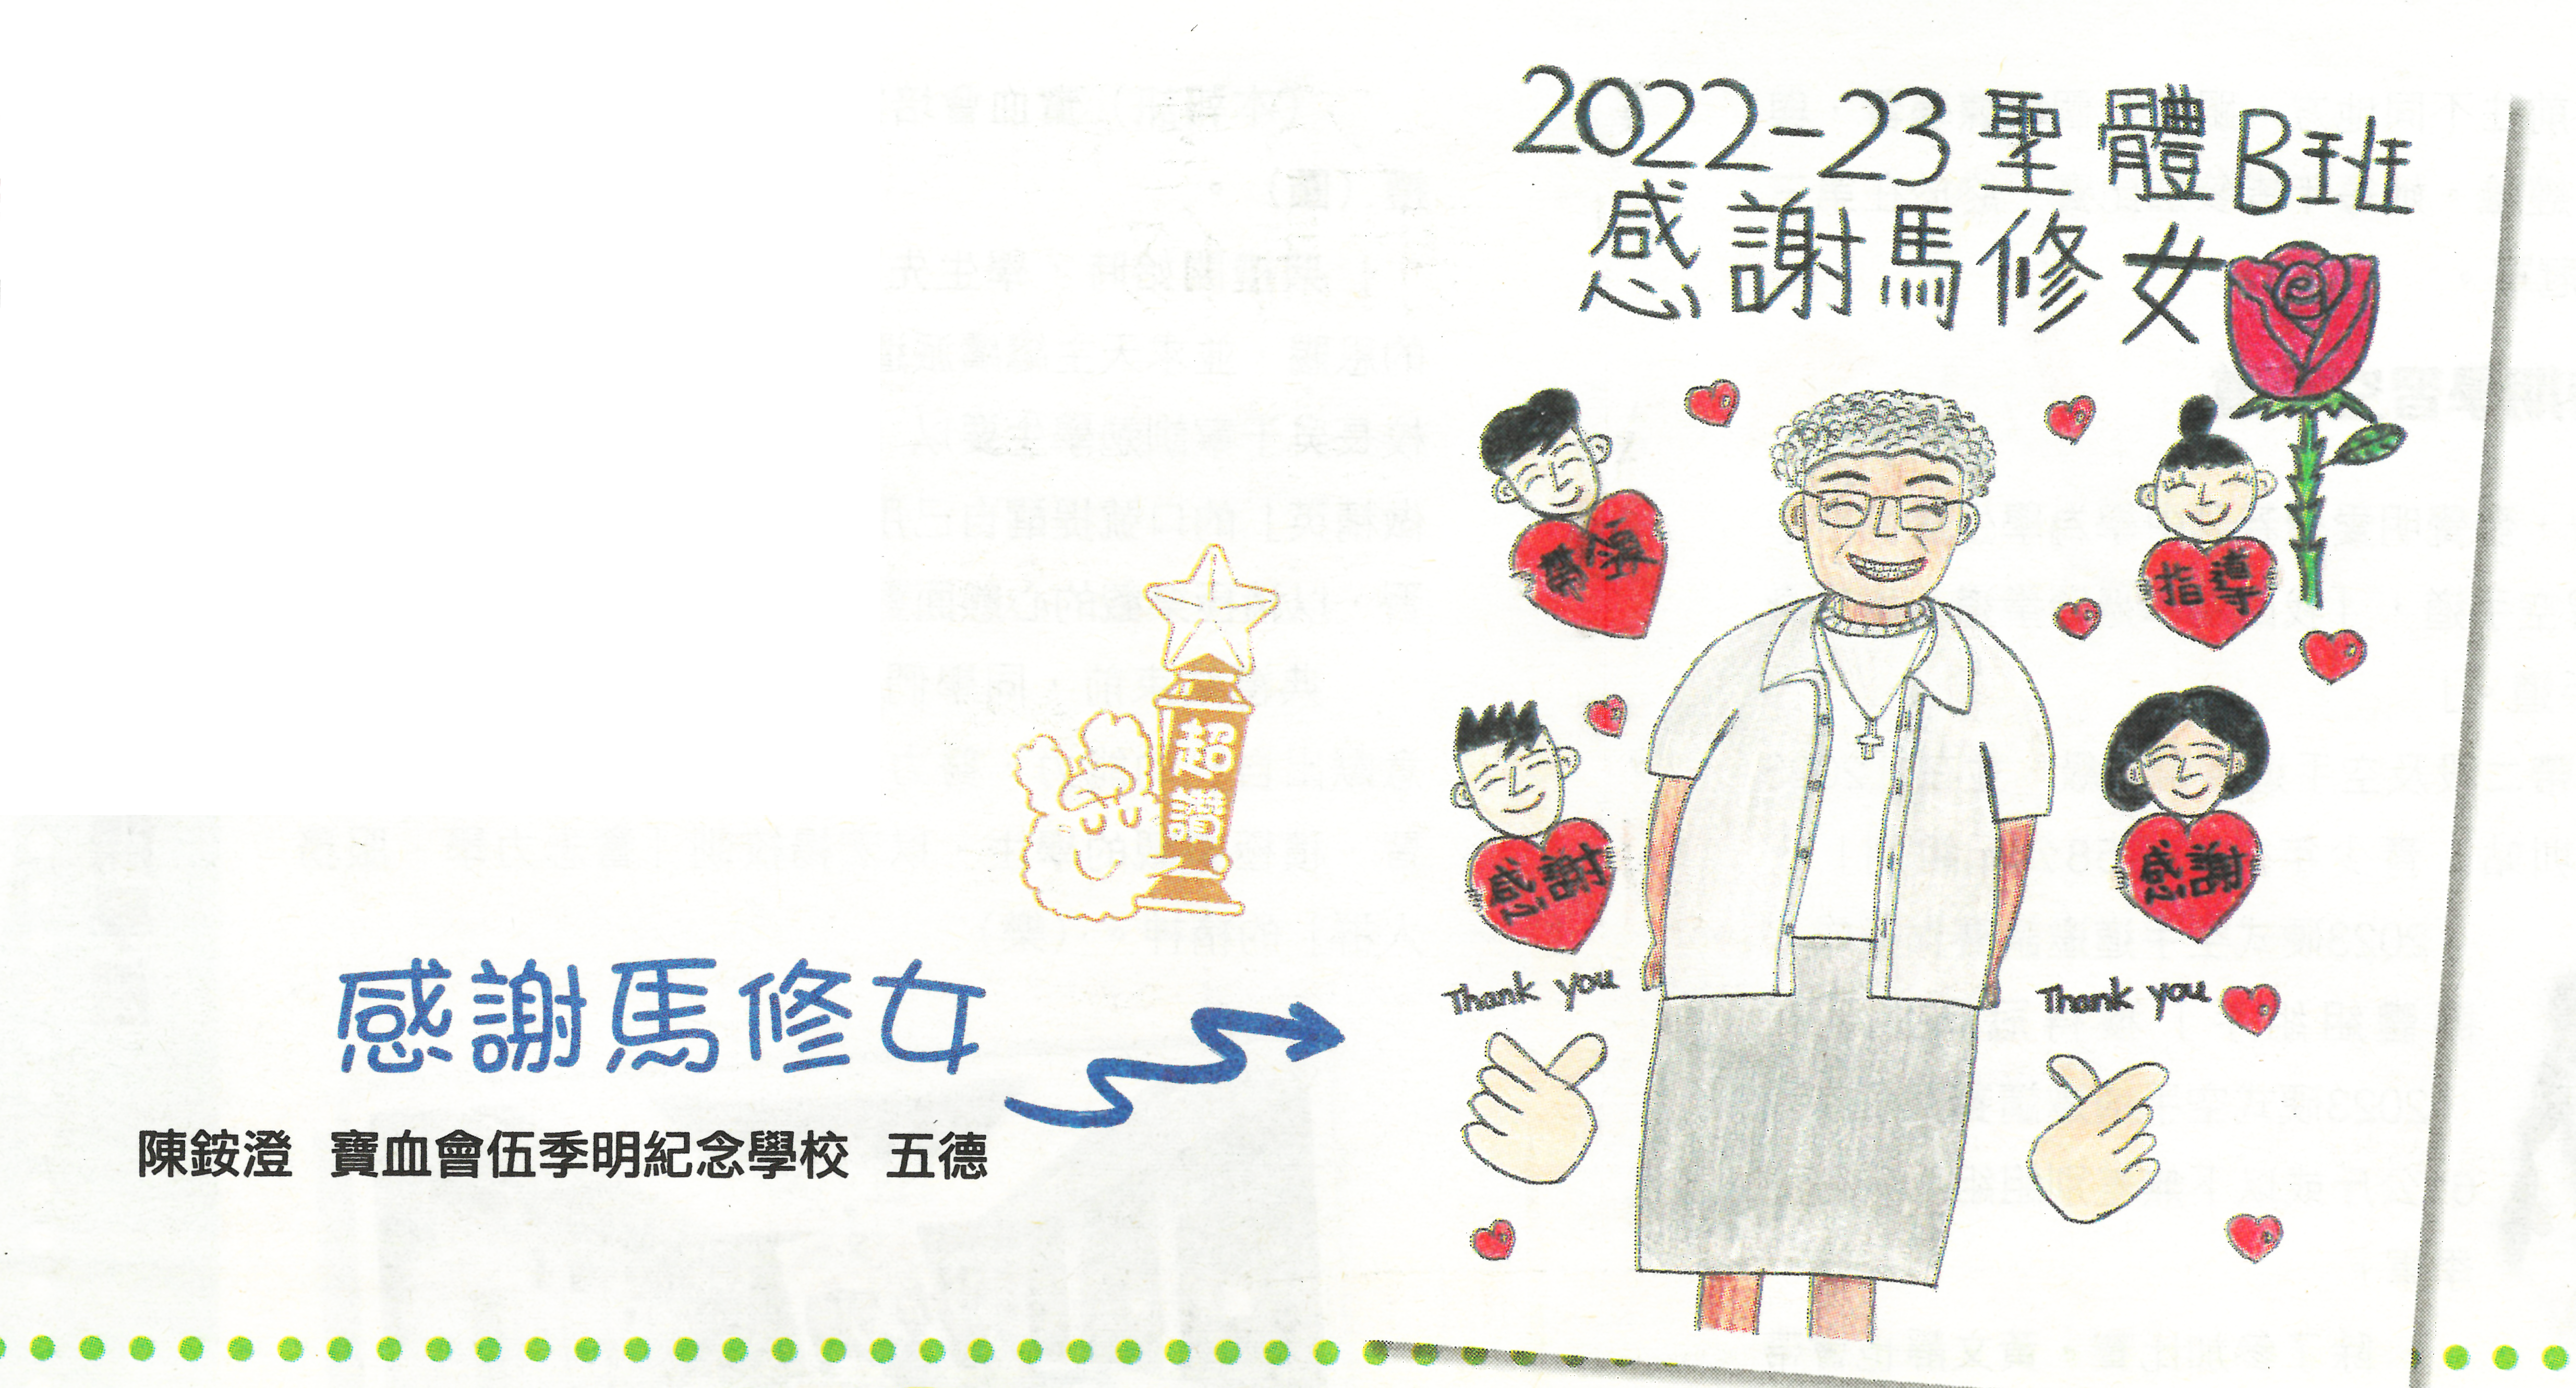 超讚
感謝馬修女
陳銨澄 寶血會伍季明紀念學校 五德
2022-23聖體B班
感謝馬修女
指導
感謝
感謝
Thank you
Thank you